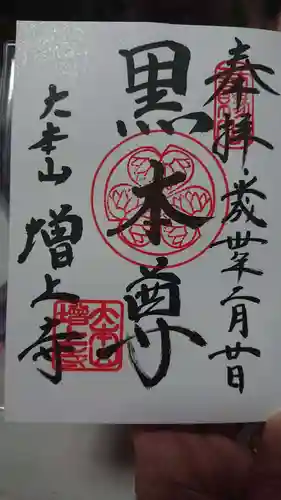 奉拝
平成卅年二月廿日
黒本尊
大本山
増上寺
大本山
増上寺